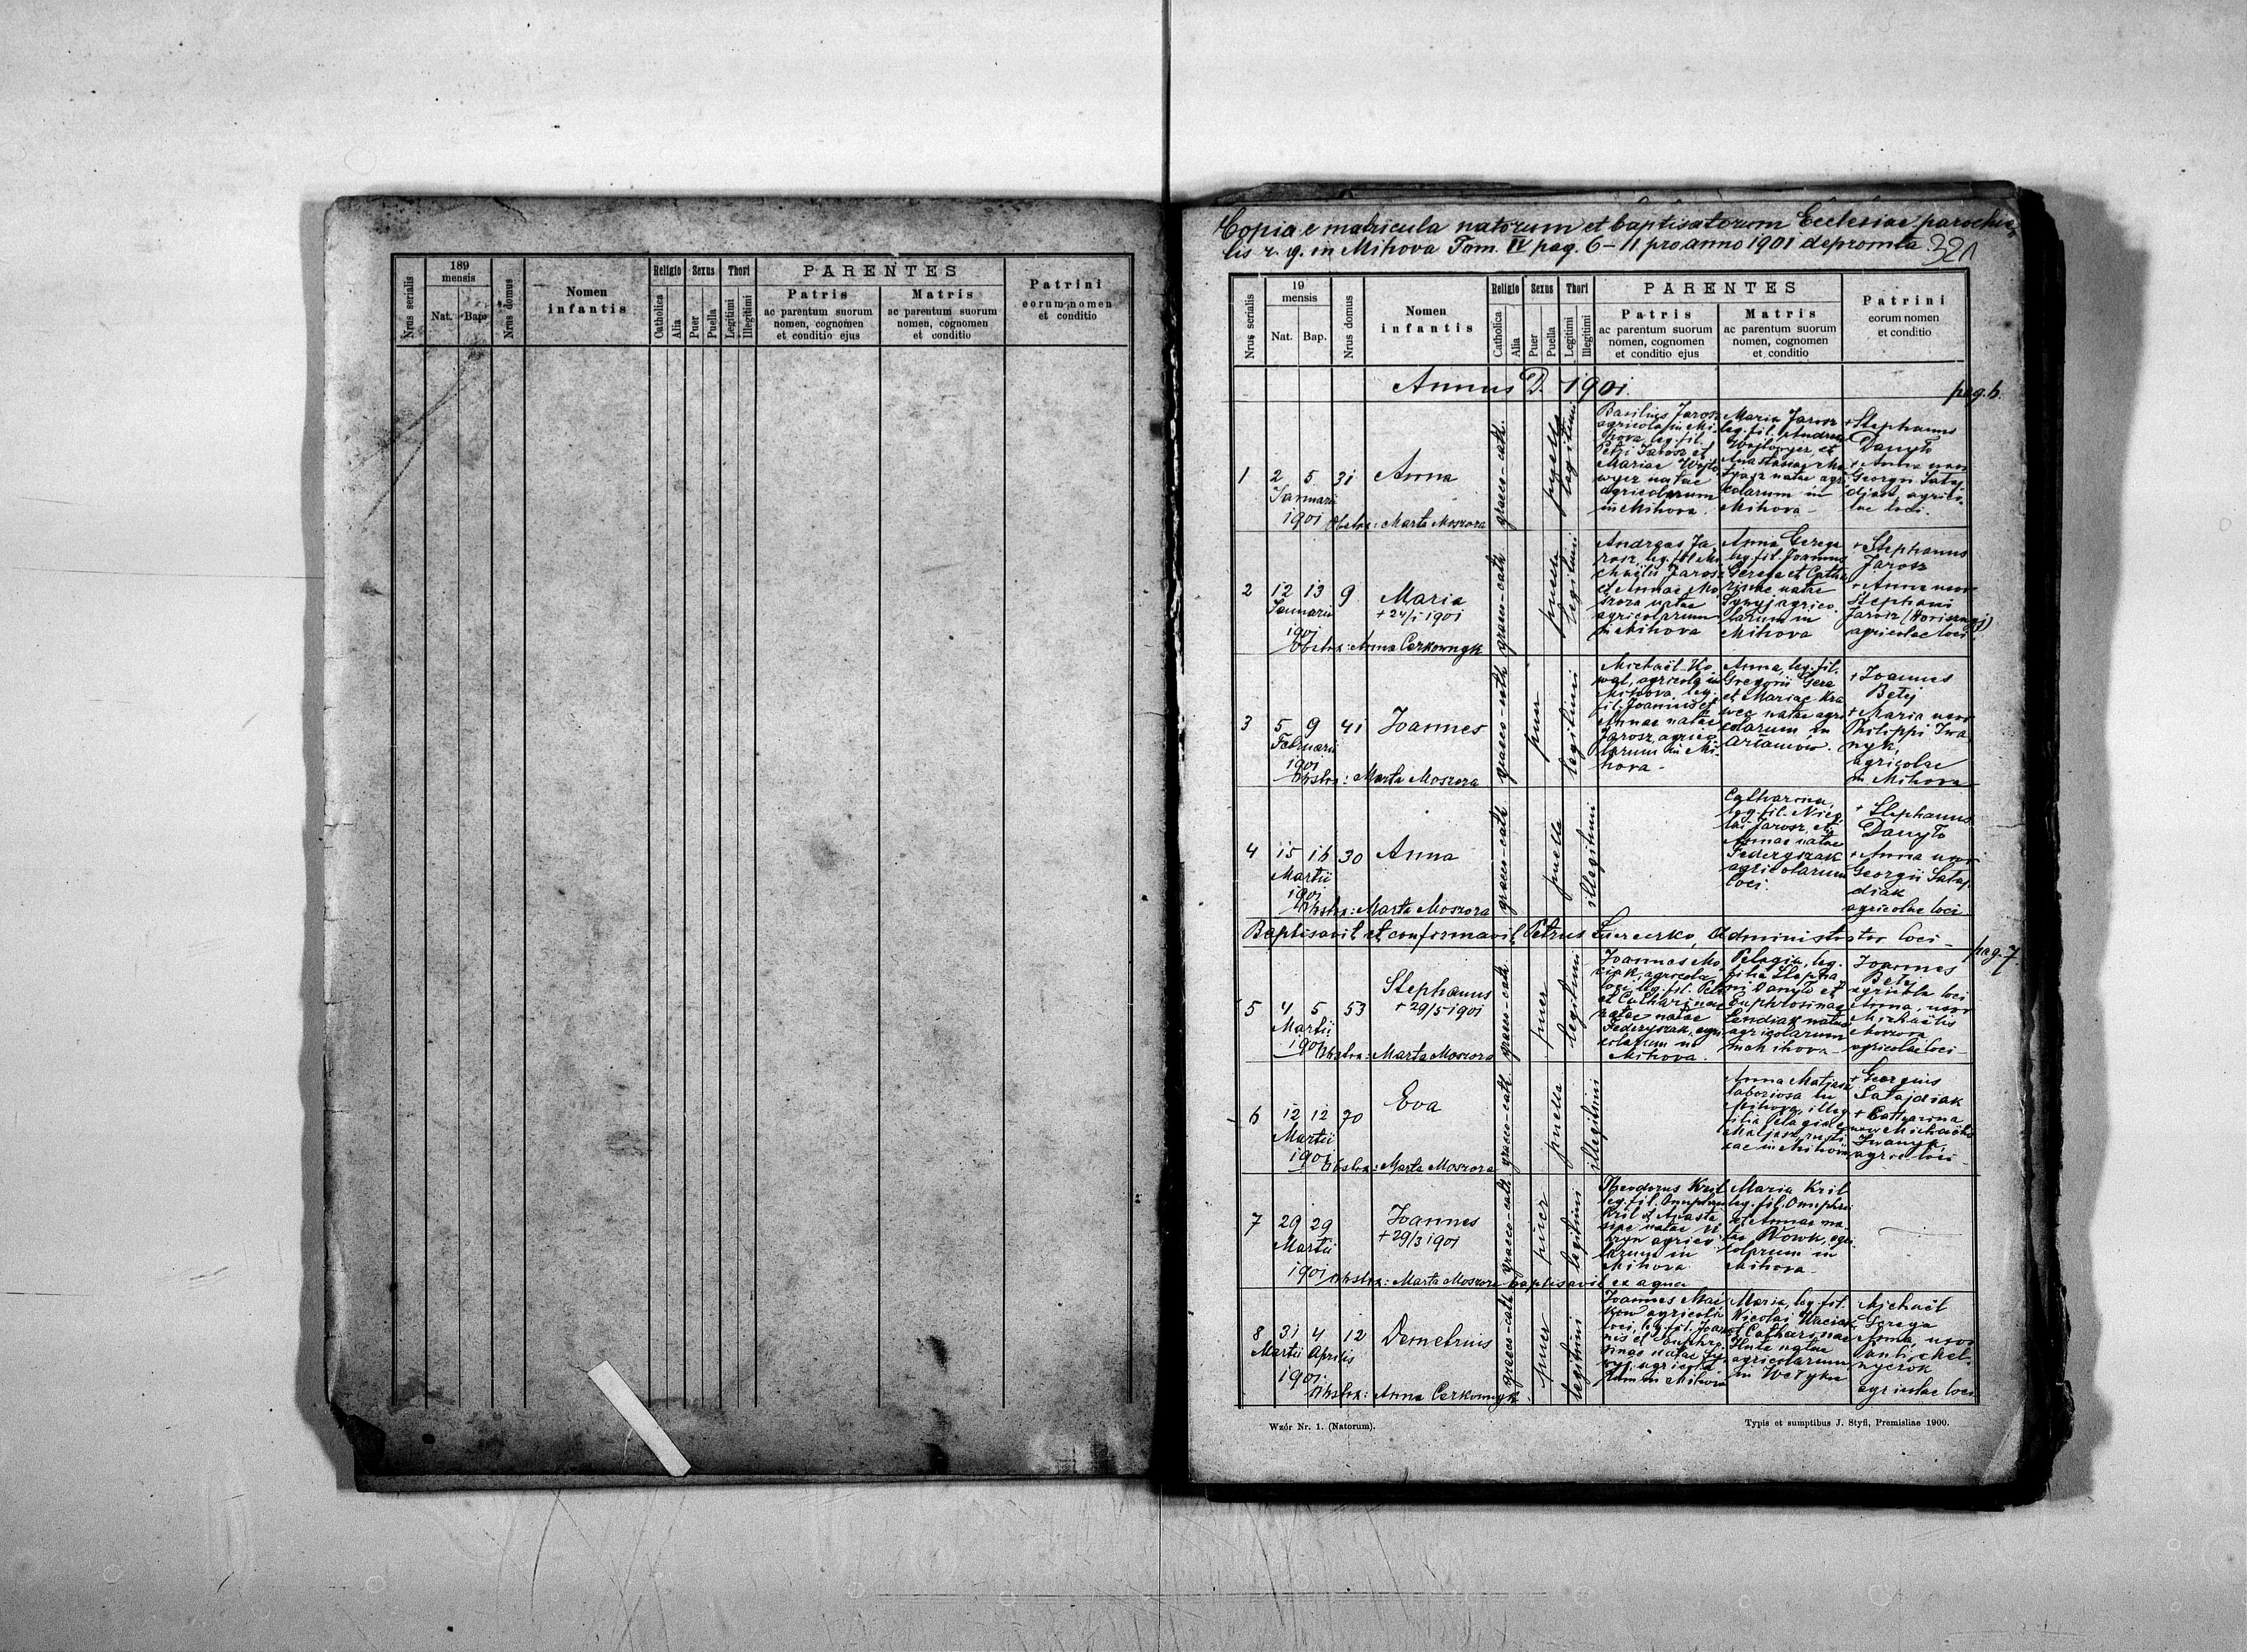 Nrus serialis
189
mensis
Nat.
Bap.
Nrus domus
Nomen
infantis
Religio
Catholica
Alia
Sexus
Puer
Puella
Thori
Legitimi
Illegitimi
PARENTES
Patris
ac parentum suorum
nomen, cognomen
et conditio ejus
Matris
ac parentum suorum
nomen, cognomen
et conditio
Patrini
eorum nomen
et conditio
Copia e matricula natorum et baptisatorum Ecclesiae parochia-
lis r. g. in Mihova Tom. IV pag. 6-11 pro anno 1901 depromta
321
Nrus serialis
19
mensis
Nat.
Bap.
Nrus domus
Nomen
infantis
Religio
Catholica
Alia
Sexus
Puer
Puella
Thori
Legitimi
Illegitimi
PARENTES
Patris
ac parentum suorum
nomen, cognomen
et conditio ejus
Matris
ac parentum suorum
nomen, cognomen
et conditio
Patrini
eorum nomen
et conditio
Annus D. 1901.
pag. 6.
1 2 5 31 Anna
Januarii
1901 Obstrx: Marta Moszora
graeco-cath.
puella
legitimi
Basilius Jarosz
agricola in Mi-
hova, leg. fil.
Petri Jarosz et
Mariae
natae
agricolarum
in Mihova.
Maria Jarosz
leg. fil. Andreae
et
Anastasiae
natae agri-
colarum in
Mihova
+ Stephanus
Danyło
+ Anna uxor
Georgii Sataj-
djak, agrico-
lae loci.
2 12 13 9 Maria
+ 24/1 1901
Januarii
1901
Obstrx: Anna Cerkownyk
graeco-cath
puella
legitimi
Andreas Ja-
rosz, leg. fil. Mi-
chaelis Jarosz
et Annae Mo-
szora natae
agricolarum
in Mihova
Anna Gerega
leg. fil. Joannis
Gerega et Catha-
rinae natae
agrico-
larum in
Mihova
+ Stephanus
Jarosz
+ Anna uxor
Stephani
Jarosz
agricolae loci
3 5 9 41 Joannes
Februarii
1901
Obstrx: Marta Moszora
graeco-cath
puer
legitimi
Michaël Ko-
wal, agricola in
Mihova, leg.
fil. Joannis et
Annae natae
Jarosz, agrico-
larum in Mi-
hova
Anna, leg. fil.
Gregorii Gera
et Mariae Kra-
wec natae agri-
colarum in
Arłamów.
+ Joannes
Betej
+ Maria uxor
Philippi Iwa-
nyk,
agricolae
in Mihova
4 15 16 30 Anna
Martii
1901
Obstrx: Marta Moszora
graeco-cath
puella
illegitimi
Catharina,
leg. fil. Nico-
lai Jarosz, et
Annae natae
Federyszak
agricolarum
loci.
+ Stephanus
Danyło
+ Anna uxor
Georgii Sataj-
diak
agricolae loci
Baptisavit et confirmavit Petrus administrator loci
pag. 7.
5 4 5 53 Stephanus
+ 29/5 1901
Martii
1901 Obstrx: Marta Moszora
graeco-cath.
puer
legitimi
Joannes
agricola
loci, leg. fil. Petri
et Catharinae
natae
Federyszak, agri-
colarum in
Mihova.
Pelagia, leg.
filia Stepha-
ni Danyło et
Euphrosinae
Lendiak natae
agricolarum
in Mihova
Joannes
Betej
agricola loci
Anna, uxor
Michaëlis
Moszora
agricolae loci
6 12 12 70 Eva
Martii
1901 Obstrx: Marta Moszora
graeco-cath.
puella
illegitimi
Anna Matjasz
laboriosa in
Mihova, illeg.
filia Pelagiae
Matjasz, rusti-
cae in Mihova
+ Georgius
Satajdiak
+ Catharina
uxor Michaëlis
Iwanyk,
agric. loci
7 29 29 Joannes
+ 29/3 1901
Martii
1901 Obstrx: Marta Moszora baptisavit ex aqua
graeco-cath
puer
legitimi
Theodorus Kril
leg. fil. Onuphrii
Kril et Anasta-
siae natae
agrico-
larum in
Mihova
Maria Kril
leg. fil. Onuphrii
et Annae na-
tae Wowk, agri-
colarum in
Mihova
8 31 4 12 Demetrius
Martii Aprilis
1901
Obstrx: Anna Cerkownyk
graeco-cath
puer
legitimi
Joannes
agricola
loci, leg. fil. Joan-
nis et Euphro-
sinae natae
agricola-
rum in Mihova
Maria, leg. fil.
Nicolai
et Catharinae
natae
agricolarum
in
Michaël
Gerega
Anna, uxor
Pauli
agricolae loci
Wzór Nr. 1. (Natorum).
Typis et sumptibus J. Styfi, Premisliae 1900.